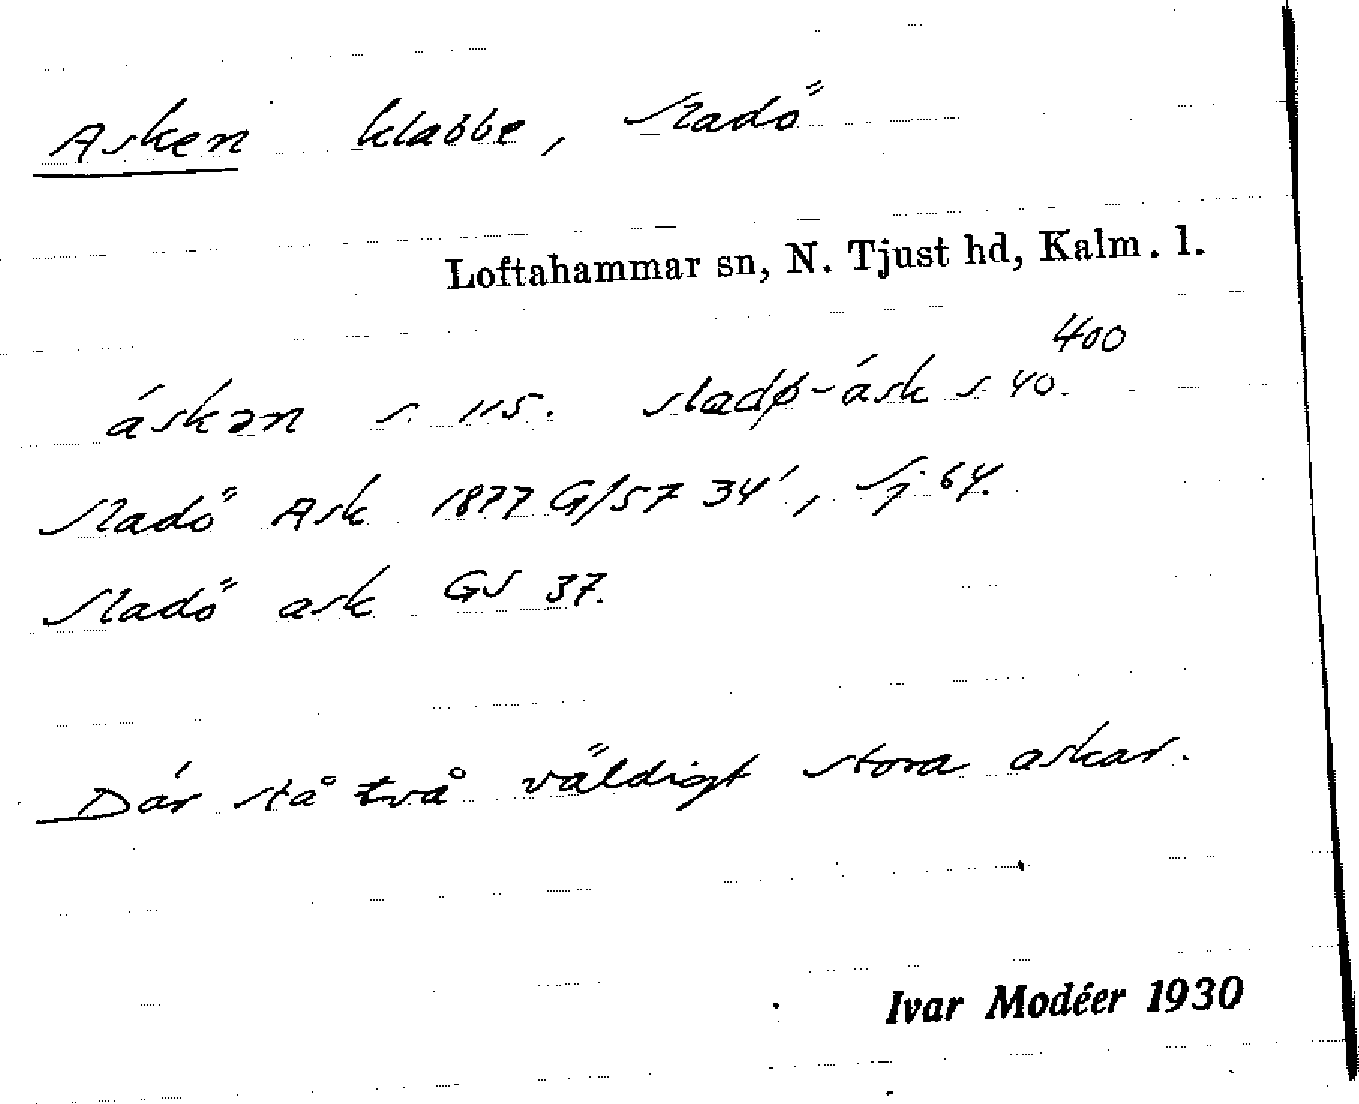 Asken klabbe, Sladö
Loftahammar sn, N. Tjust hd, Kalm. l.
400
áskən s. 115. sladø-ásk s 40.
Sladö Ask 1877 G/57 34', Sj 64.
Sladö ask GS 37.
Där stå två väldigt stora askar.
Ivar Modéer 1930